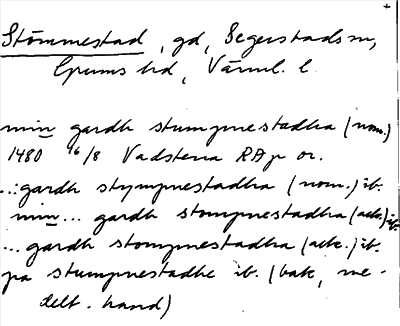 Stömmestad, gd, Segerstads sn,
Grums hd, Värml. l.
min gardh stumpnestadha (nom.)
1480 16/8 Vadstena RAp or.
...gardh stympnestadha (nom.) ib.
min... gardh stompnestadha (ack.) ib.
... gardh stompnestadha (ack.) ib.
pa stumpnestadhe ib. (bak, me-
delt. hand)